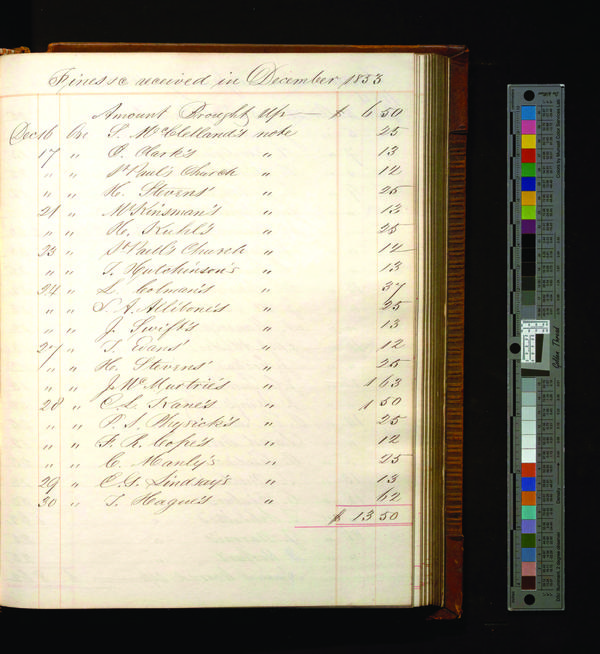 Fines &c received in December 1853
Amount Brought Up — $ 6 50
Dec 16 by S. McClelland's note 25
17 " O. Clark's " 13
" " St Paul's Church " 12
" " H. Stevens' " 25
21 " McKinsman's " 13
" " H. Kuhl's " 25
23 " St Paul's Church " 12
" " T. Hutchinson's " 13
24 " L. Colman's " 37
" " S. A. Allibone's " 25
" " J. Swift's " 13
27 " T. Evans' " 12
" " H. Stevens' " 25
" " J. McMurtrie's " 1 63
28 " C. L. Kane's " 1 50
" " P. S. Physick's " 25
" " F. R. Cope's " 12
" " C. Manly's " 25
29 " C. G. Lindsay's " 13
30 " T. Hague's " 62
$ 13 50